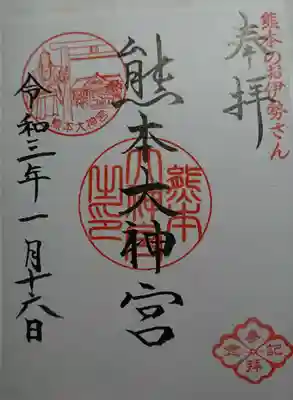 熊本のお伊勢さん
奉拝
熊本大神宮
熊本
大神宮
之印
熊本大神宮
令和三年一月十六日
参拝
記念